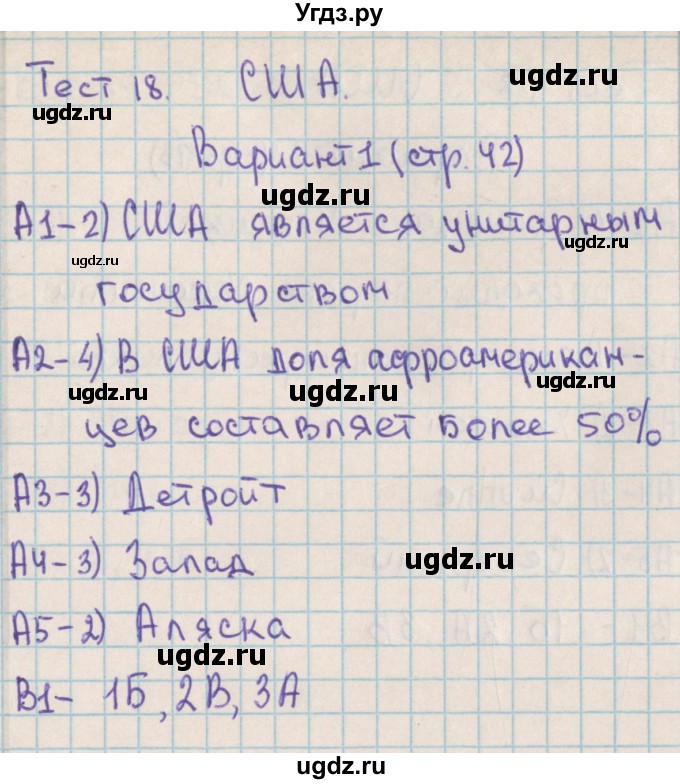 Угдз.ру
Тест 18. США.
ugdz.ru ugdz.ru
Вариант 1 (стр. 42)
ugdz.ru
А1-2) США является унитарным
ugdz.ru ugdz.ru
государством
А2-4) В США доля афроамерикан-
ugdz.ru ugdz.ru ugdz.ru
цев составляет более 50%
А3-3) Детройт
А4-3) Запад
ugdz.ru
А5-2) Аляска
ugdz.ru
В1- 1Б, 2В, 3А
ugdz.ru